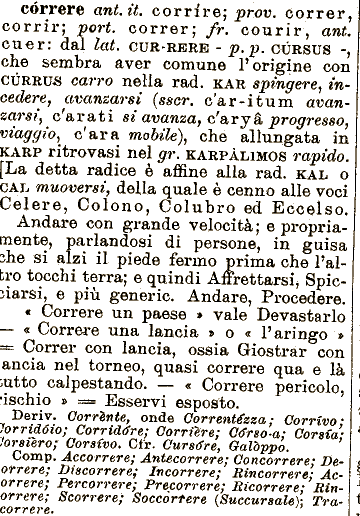 córrere ant. it. corríre; prov. correr,
corrir; port. correr; fr. courir, ant.
cuer: dal lat. CÚR-RERE - p. p. CÚRSUS -,
che sembra aver comune l'origine con
CÚRRUS carro nella rad. KAR spingere, in-
cedere, avanzarsi (sscr. c'ar-itum avan-
zarsi, c'arati si avanza, c'aryâ progresso,
viaggio, c'ara mobile), che allungata in
KARP ritrovasi nel gr. KARPÀLIMOS rapido.
[La detta radice è affine alla rad. KAL o
CAL muoversi, della quale è cenno alle voci
Celere, Colono, Colubro ed Eccelso.
Andare con grande velocità; e propria-
mente, parlandosi di persone, in guisa
che si alzi il piede fermo prima che l'al-
tro tocchi terra; e quindi Affrettarsi, Spic-
ciarsi, e più generic. Andare, Procedere.
« Correre un paese » vale Devastarlo
— « Correre una lancia » o « l'aringo »
= Correr con lancia, ossia Giostrar con
lancia nel torneo, quasi correr qua e là
tutto calpestando. — « Correre pericolo,
rischio » = Esservi esposto.
Deriv. Corrènte, onde Correntézza; Corrívo;
Corridóio; Corridóre; Corrière; Córso-a; Corsía;
Corsièro; Corsívo. Cfr. Cursóre, Galòppo.
Comp. Accorrere; Antecorrere; Concorrere; De-
correre; Discorrere; Incorrere; Rincorrere; Ac-
correre; Percorrere; Precorrere; Ricorrere; Rin-
correre; Scorrere; Soccorrere (Succursale); Tra-
correre.